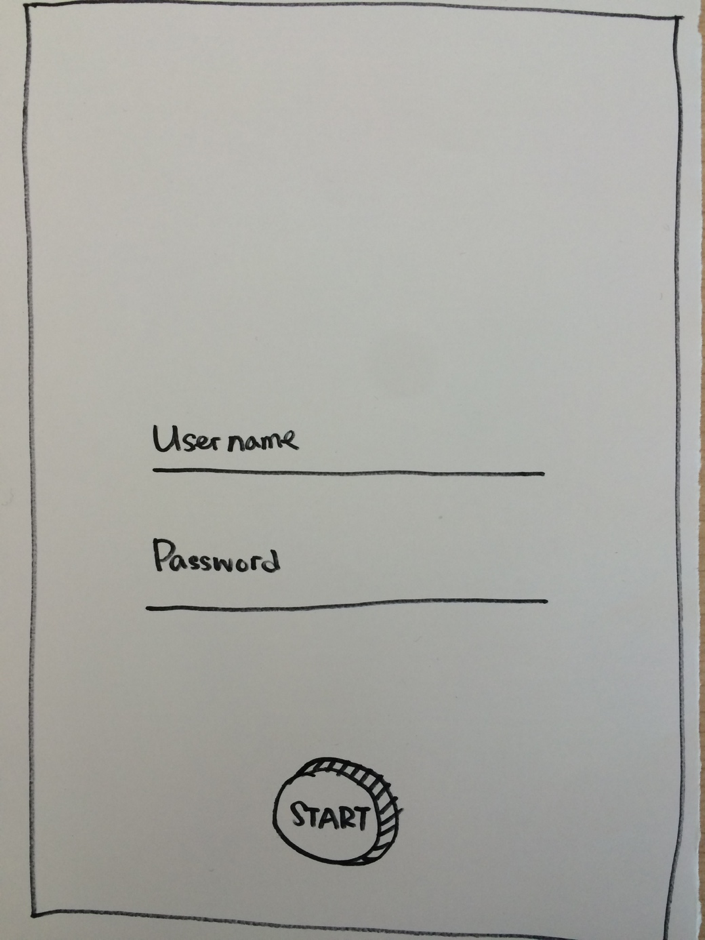 Username
Password
START